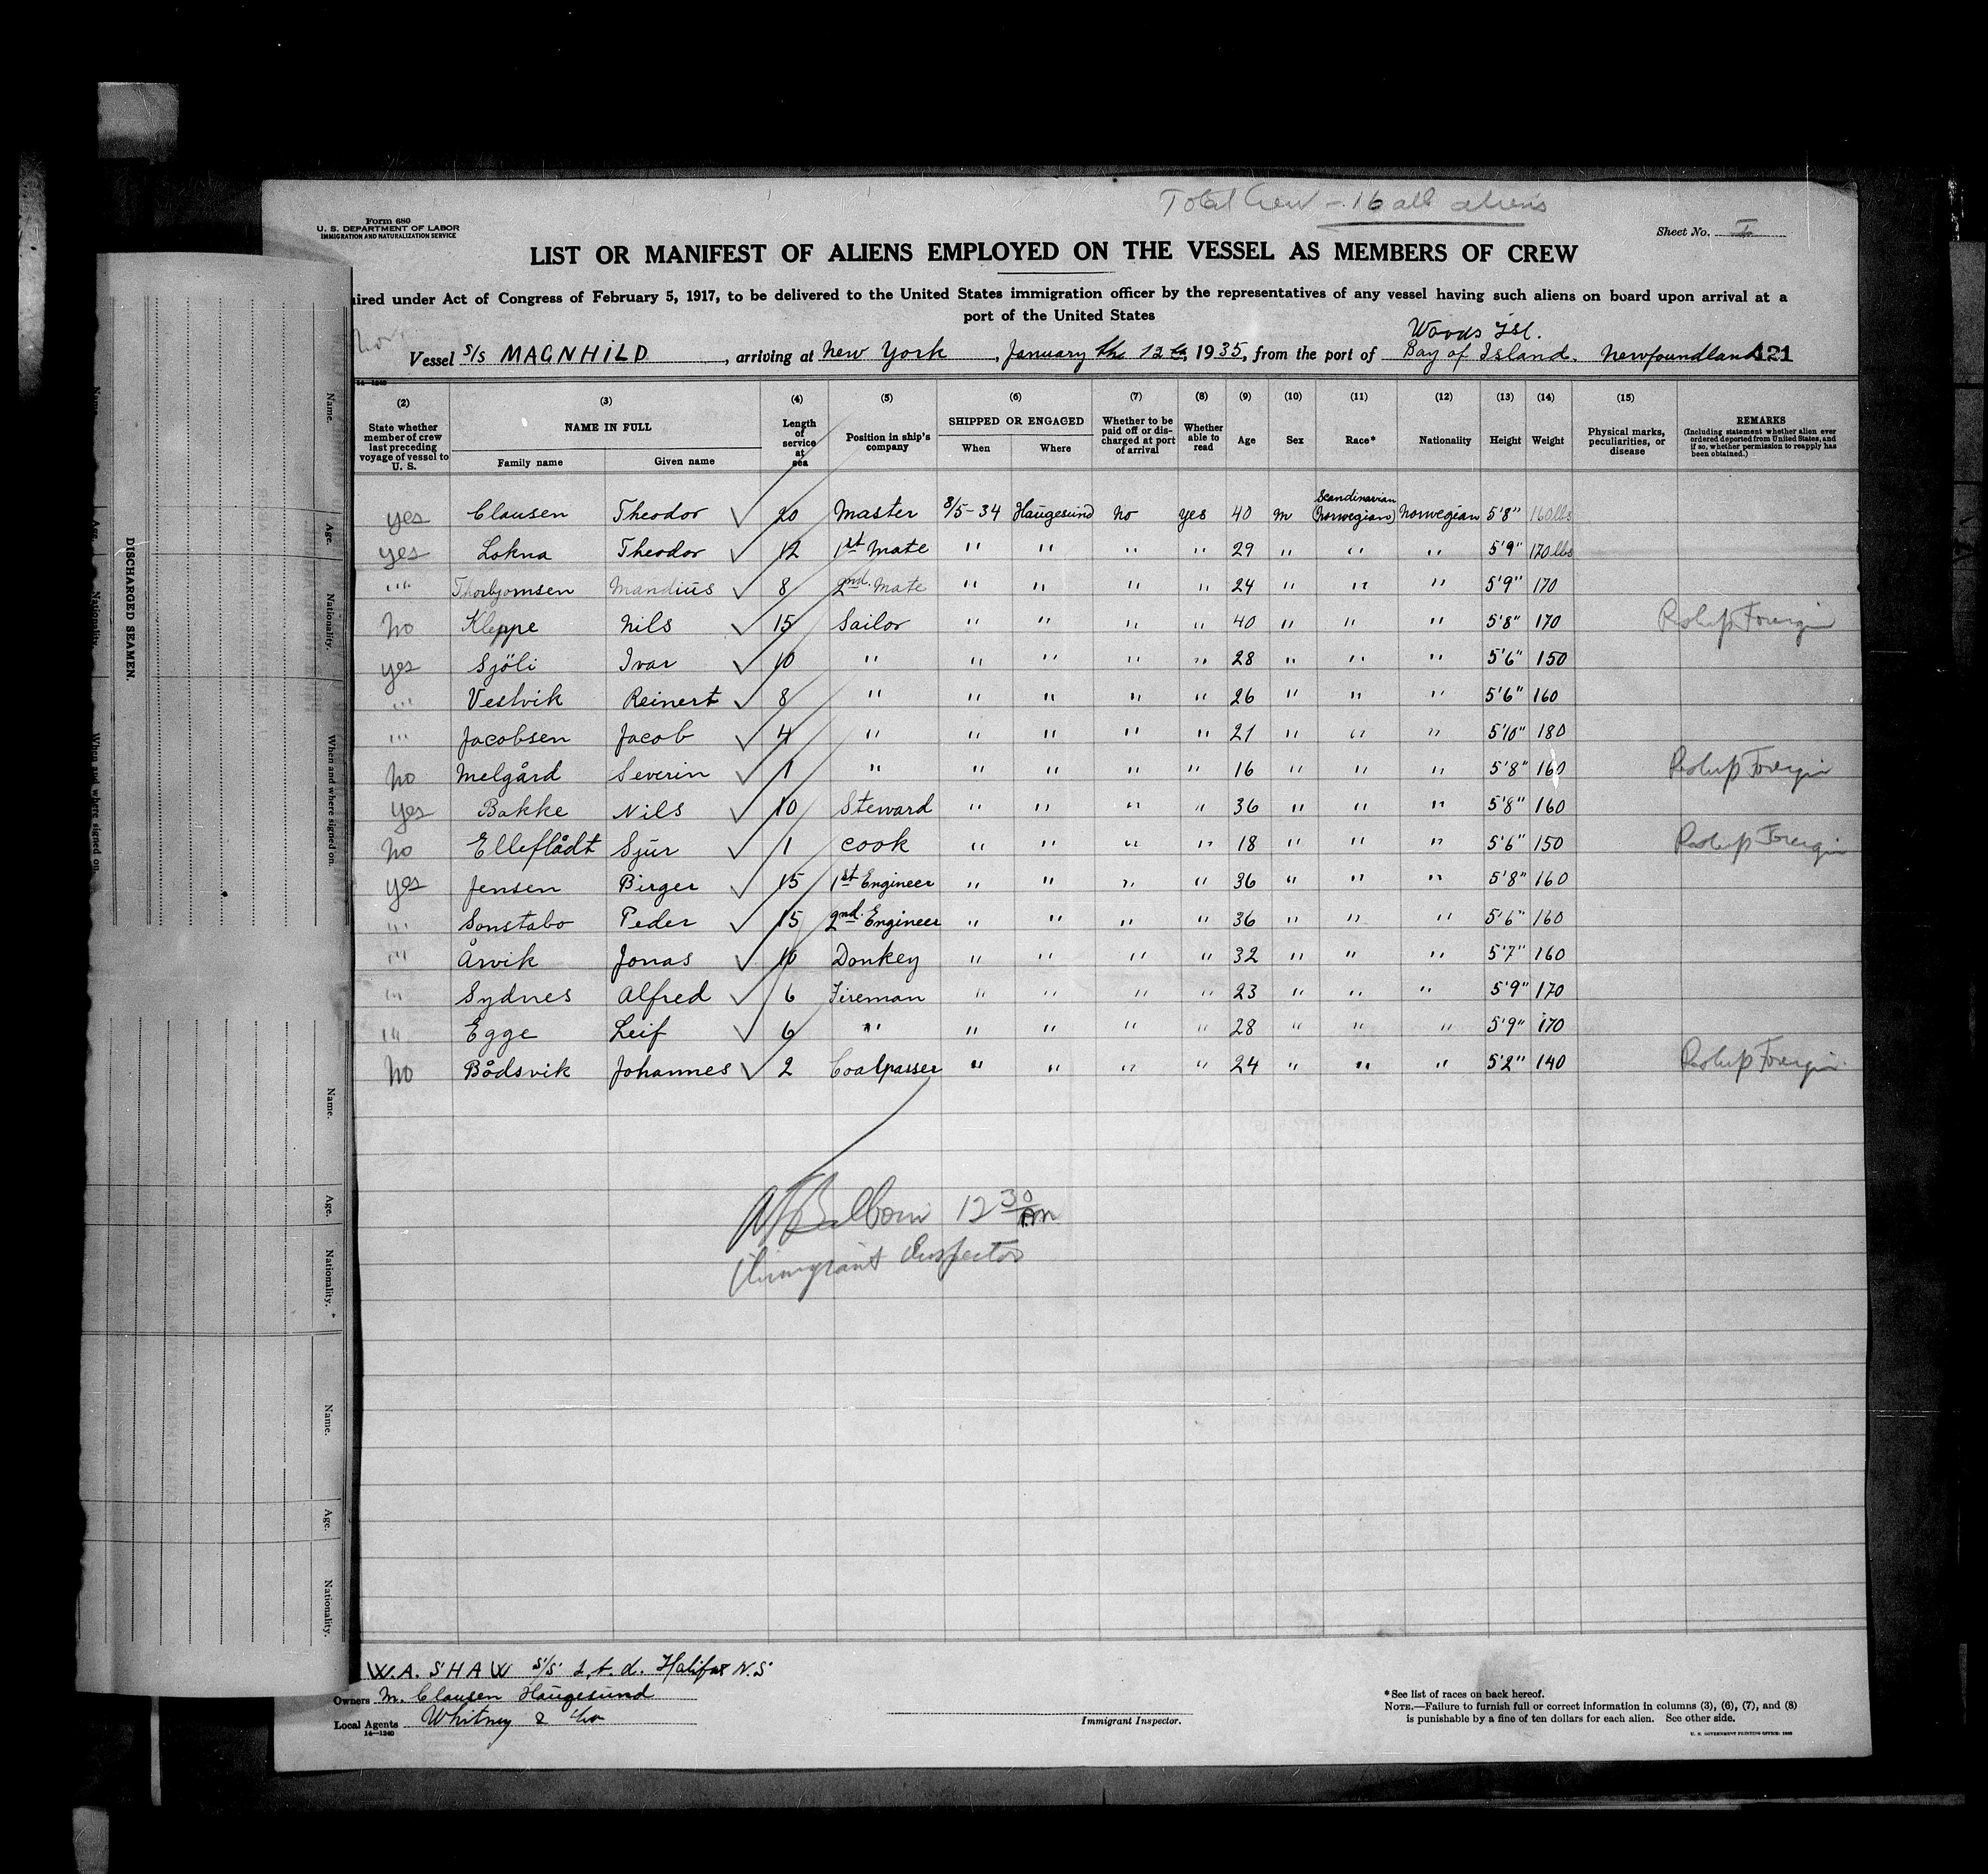 Total Crew - 16 all aliens
Form 680
U. S. DEPARTMENT OF LABOR
IMMIGRATION AND NATURALIZATION SERVICE
Sheet No. I
LIST OR MANIFEST OF ALIENS EMPLOYED ON THE VESSEL AS MEMBERS OF CREW
uired under Act of Congress of February 5, 1917, to be delivered to the United States immigration officer by the representatives of any vessel having such aliens on board upon arrival at a
port of the United States
Woods Isl.
Vessel S/S MAGNHILD, arriving at New York, January the 12th, 1935, from the port of Bay of Island. Newfoundland 121
14—1240
(2) (3) (4) (5) (6) (7) (8) (9) (10) (11) (12) (13) (14) (15)
State whether member of crew last preceding voyage of vessel to U. S. NAME IN FULL Family name Given name Length of service at sea Position in ship's company SHIPPED OR ENGAGED When Where Whether to be paid off or discharged at port of arrival Whether able to read Age Sex Race* Nationality Height Weight Physical marks, peculiarities, or disease REMARKS (Including statement whether alien ever ordered deported from United States, and if so, whether permission to reapply has been obtained.)
yes Clausen Theodor ✓ 20 Master 8/5-34 Haugesund no yes 40 m Scandinavian (Norwegian) Norwegian 5'8" 160 lbs
yes Lokna Theodor ✓ 12 1st Mate " " " " 29 " " " 5'9" 170 lbs
" Thorbjornsen Mandius ✓ 8 2nd. Mate " " " " 24 " " " 5'9" 170
no Kleppe Nils ✓ 15 Sailor " " " " 40 " " " 5'8" 170 Foreign
yes Sjöli Ivar ✓ 10 " " " " " 28 " " " 5'6" 150
" Vestvik Reinert ✓ 8 " " " " " 26 " " " 5'6" 160
" Jacobsen Jacob ✓ 4 " " " " " 21 " " " 5'10" 180
no Melgård Severin ✓ 1 " " " " " 16 " " " 5'8" 160 Foreign
yes Bakke Nils ✓ 10 Steward " " " " 36 " " " 5'8" 160
no Elleflådt Sjur ✓ 1 cook " " " " 18 " " " 5'6" 150 Foreign
yes Jensen Birger ✓ 15 1st Engineer " " " " 36 " " " 5'8" 160
" Sonstabo Peder ✓ 15 2nd. Engineer " " " " 36 " " " 5'6" 160
" Årvik Jonas ✓ 10 Donkey " " " " 32 " " " 5'7" 160
" Sydnes Alfred ✓ 6 Fireman " " " " 23 " " " 5'9" 170
" Egge Leif ✓ 6 " " " " " 28 " " " 5'9" 170
no Bådsvik Johannes ✓ 2 Coalpasser " " " " 24 " " " 5'2" 140 Foreign
12 30 PM
Immigrant Inspector
W.A. SHAW S/S Ltd. Halifax N.S
Owners M. Clausen Haugesund
Local Agents Whitney & Co
14—1240
Immigrant Inspector.
*See list of races on back hereof.
NOTE.—Failure to furnish full or correct information in columns (3), (6), (7), and (8)
is punishable by a fine of ten dollars for each alien. See other side.
U. S. GOVERNMENT PRINTING OFFICE
DISCHARGED SEAMEN.
Name. Age. Nationality. When and where signed on.
Name. Age. Nationality. When and where signed on.
Name. Age. Nationality.
Name. Age. Nationality.